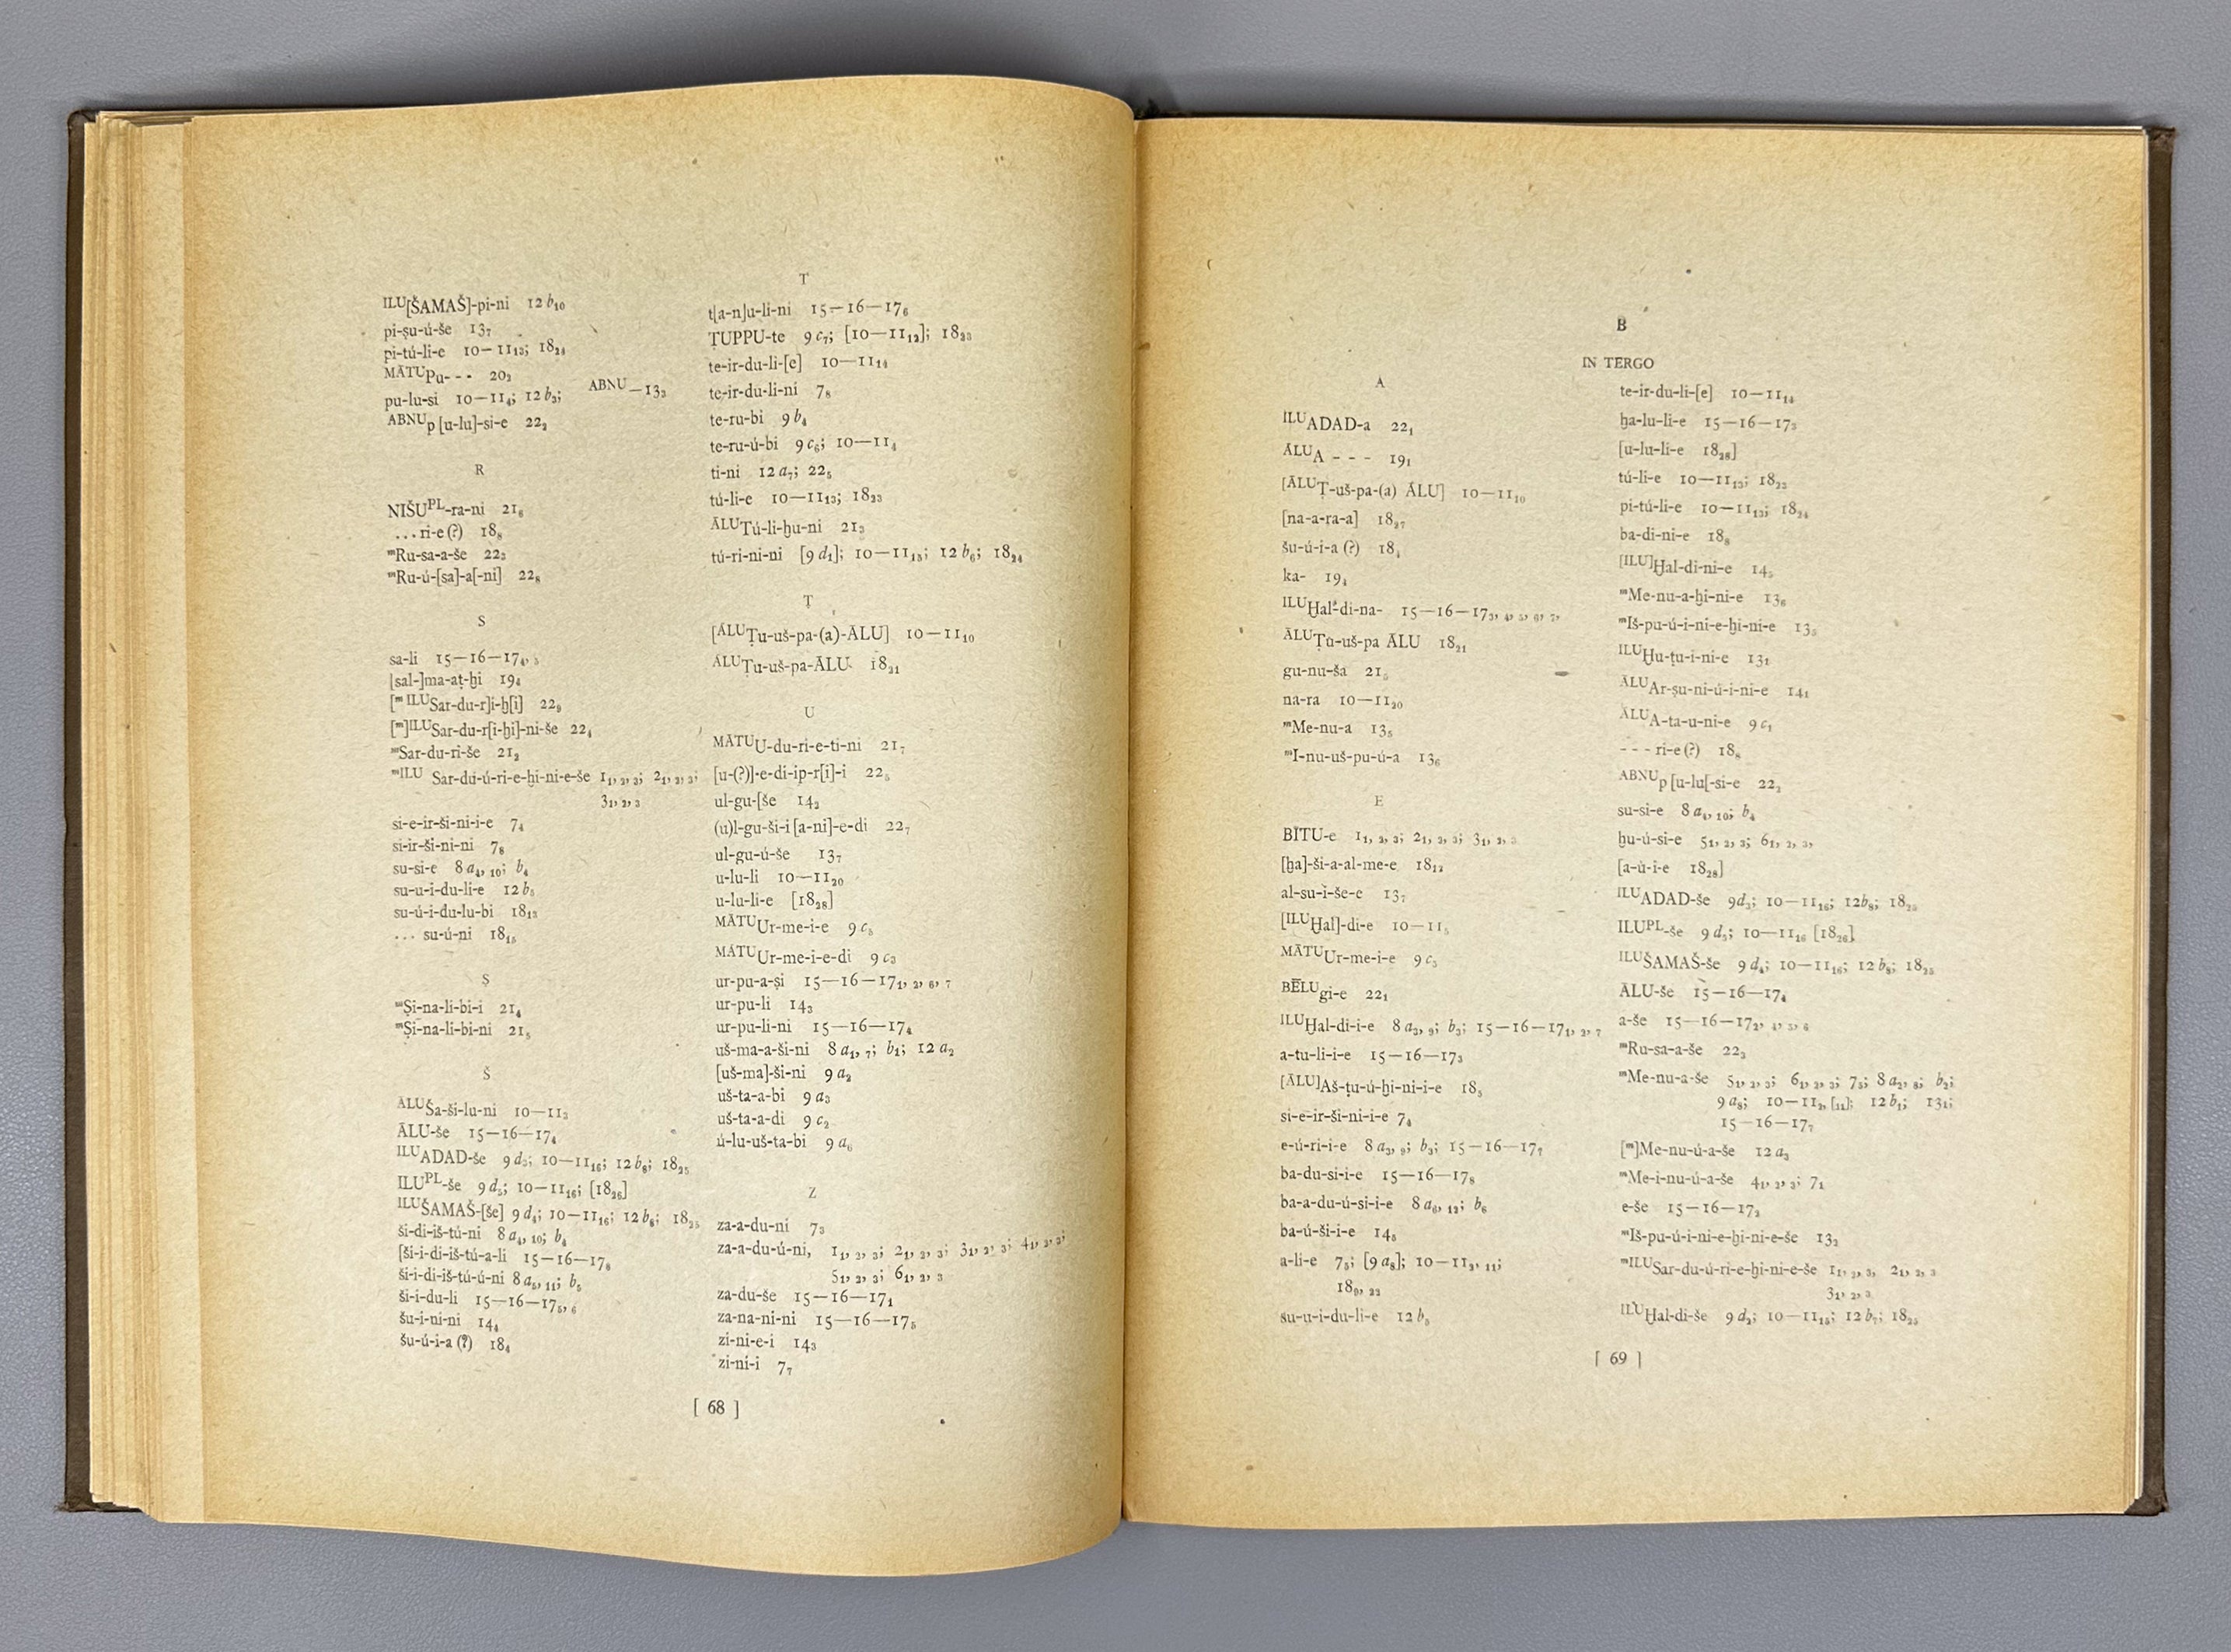 ILU[ŠAMAŠ]-pi-ni 12 b₁₀
pi-ṣu-ú-še 13₇
pi-tú-li-e 10—11₁₃; 18₂₄
MĀTUPu- - - 20₂
pu-lu-si 10—11₄; 12 b₃; ABNU—13₃
ABNUp[u-lu]-si-e 22₂
R
NIŠUPL-ra-ni 21₆
...ri-e(?) 18₈
ᵐRu-sa-a-še 22₃
ᵐRu-ú-[sa]-a[-ni] 22₈
S
sa-li 15—16—17₄, ₅
[sal-]ma-aṭ-ḫi 19₄
[ᵐ ILUSar-du-r]i-ḫ[i] 22₉
[ᵐ]ILUSar-du-r[i-ḫi]-ni-še 22₄
ᵐSar-du-ri-še 21₂
ᵐILU Sar-du-ú-ri-e-ḫi-ni-e-še 1₁, ₂, ₃; 2₁, ₂, ₃;
3₁, ₂, ₃
si-e-ir-ši-ni-i-e 7₄
si-ir-ši-ni-ni 7₈
su-si-e 8 a₄, ₁₀; b₄
su-u-i-du-li-e 12 b₅
su-ú-i-du-lu-bi 18₁₃
... su-ú-ni 18₁₅
Ṣ
ᵐṢi-na-li-bi-i 21₄
ᵐṢi-na-li-bi-ni 21₅
Š
ĀLUŠa-ši-lu-ni 10—11₃
ĀLU-še 15—16—17₄
ILUADAD-še 9 d₃; 10—11₁₆; 12 b₈; 18₂₅
ILUPL-še 9 d₅; 10—11₁₆; [18₂₆]
ILUŠAMAŠ-[še] 9 d₄; 10—11₁₆; 12 b₈; 18₂₅
ši-di-iš-tú-ni 8 a₄, ₁₀; b₄
[ši-i-di-iš-tú-a-li 15—16—17₈
ši-i-di-iš-tú-ú-ni 8 a₅, ₁₁; b₅
ši-i-du-li 15—16—17₅, ₆
šu-i-ni-ni 14₄
šu-ú-i-a (?) 18₄
T
t[a-n]u-li-ni 15—16—17₆
TUPPU-te 9 c₇; [10—11₁₂]; 18₂₃
te-ir-du-li-[e] 10—11₁₄
te-ir-du-li-ni 7₈
te-ru-bi 9 b₄
te-ru-ú-bi 9 c₆; 10—11₄
ti-ni 12 a₇; 22₅
tú-li-e 10—11₁₃; 18₂₃
ĀLUTú-li-ḫu-ni 21₃
tú-ri-ni-ni [9 d₁]; 10—11₁₅; 12 b₆; 18₂₄
Ṭ
[ĀLUṬu-uš-pa-(a)-ĀLU] 10—11₁₀
ĀLUṬu-uš-pa-ĀLU 18₂₁
U
MĀTUU-du-ri-e-ti-ni 21₇
[u-(?)]-e-di-ip-r[i]-i 22₅
ul-gu-[še 14₂
(u)l-gu-ši-i[a-ni]-e-di 22₇
ul-gu-ú-še 13₇
u-lu-li 10—11₂₀
u-lu-li-e [18₂₈]
MĀTUUr-me-i-e 9 c₅
MĀTUUr-me-i-e-di 9 c₃
ur-pu-a-ṣi 15—16—17₁, ₂, ₆, ₇
ur-pu-li 14₃
ur-pu-li-ni 15—16—17₄
uš-ma-a-ši-ni 8 a₁, ₇; b₁; 12 a₂
[uš-ma]-ši-ni 9 a₂
uš-ta-a-bi 9 a₃
uš-ta-a-di 9 c₂
ú-lu-uš-ta-bi 9 a₆
Z
za-a-du-ni 7₃
za-a-du-ú-ni, 1₁, ₂, ₃; 2₁, ₂, ₃; 3₁, ₂, ₃; 4₁, ₂, ₃;
5₁, ₂, ₃; 6₁, ₂, ₃
za-du-še 15—16—17₁
za-na-ni-ni 15—16—17₅
zi-ni-e-i 14₃
zi-ni-i 7₇
[ 68 ]
B
IN TERGO
A
ILUADAD-a 22₁
ĀLUA - - - 19₁
[ĀLUṬ-uš-pa-(a) ĀLU] 10—11₁₀
[na-a-ra-a] 18₂₇
šu-ú-i-a (?) 18₄
ka- 19₄
ILUḪal-di-na- 15—16—17₃, ₄, ₅, ₆, ₇,
ĀLUṬu-uš-pa ĀLU 18₂₁
gu-nu-ša 21₅
na-ra 10—11₂₀
ᵐMe-nu-a 13₅
ᵐI-nu-uš-pu-ú-a 13₆
E
BĪTU-e 1₁, ₂, ₃; 2₁, ₂, ₃; 3₁, ₂, ₃
[ḫa]-ši-a-al-me-e 18₁₂
al-su-i-še-e 13₇
[ILUḪal]-di-e 10—11₅
MĀTUUr-me-i-e 9 c₅
BĒLUgi-e 22₁
ILUḪal-di-i-e 8 a₃, ₉; b₃; 15—16—17₁, ₂, ₇
a-tu-li-i-e 15—16—17₃
[ĀLU]Aš-ṭu-ú-ḫi-ni-i-e 18₅
si-e-ir-ši-ni-i-e 7₄
e-ú-ri-i-e 8 a₃, ₉; b₃; 15—16—17₇
ba-du-si-i-e 15—16—17₈
ba-a-du-ú-si-i-e 8 a₆, ₁₂; b₆
ba-ú-ši-i-e 14₅
a-li-e 7₅; [9 a₈]; 10—11₂, ₁₁;
18₉, ₂₂
su-u-i-du-li-e 12 b₅
te-ir-du-li-[e] 10—11₁₄
ḫa-lu-li-e 15—16—17₃
[u-lu-li-e 18₂₈]
tú-li-e 10—11₁₃; 18₂₃
pi-tú-li-e 10—11₁₃; 18₂₄
ba-di-ni-e 18₈
[ILU]Ḫal-di-ni-e 14₅
ᵐMe-nu-a-ḫi-ni-e 13₆
ᵐIš-pu-ú-i-ni-e-ḫi-ni-e 13₅
ILUḪu-ṭu-i-ni-e 13₁
ĀLUAr-ṣu-ni-ú-i-ni-e 14₁
ĀLUA-ta-u-ni-e 9 c₁
- - - ri-e (?) 18₈
ABNUp[u-lu[-si-e 22₂
su-si-e 8 a₄, ₁₀; b₄
ḫu-ú-si-e 5₁, ₂, ₃; 6₁, ₂, ₃,
[a-ú-i-e 18₂₈]
ILUADAD-še 9d₃; 10—11₁₆; 12b₈; 18₂₅
ILUPL-še 9 d₅; 10—11₁₆ [18₂₆]
ILUŠAMAŠ-še 9 d₄; 10—11₁₆; 12 b₈; 18₂₅
ĀLU-še 15—16—17₄
a-še 15—16—17₂, ₄, ₅, ₆
ᵐRu-sa-a-še 22₃
ᵐMe-nu-a-še 5₁, ₂, ₃; 6₁, ₂, ₃; 7₅; 8 a₂, ₈; b₂;
9 a₈; 10—11₂, [₁₁]; 12 b₁; 13₁;
15—16—17₇
[ᵐ]Me-nu-ú-a-še 12 a₃
ᵐMe-i-nu-ú-a-še 4₁, ₂, ₃; 7₁
e-še 15—16—17₂
ᵐIš-pu-ú-i-ni-e-ḫi-ni-e-še 13₂
ᵐILUSar-du-ú-ri-e-ḫi-ni-e-še 1₁, ₂, ₃, 2₁, ₂, ₃
3₁, ₂, ₃
ILUḪal-di-še 9 d₂; 10—11₁₅; 12 b₇; 18₂₅
[ 69 ]